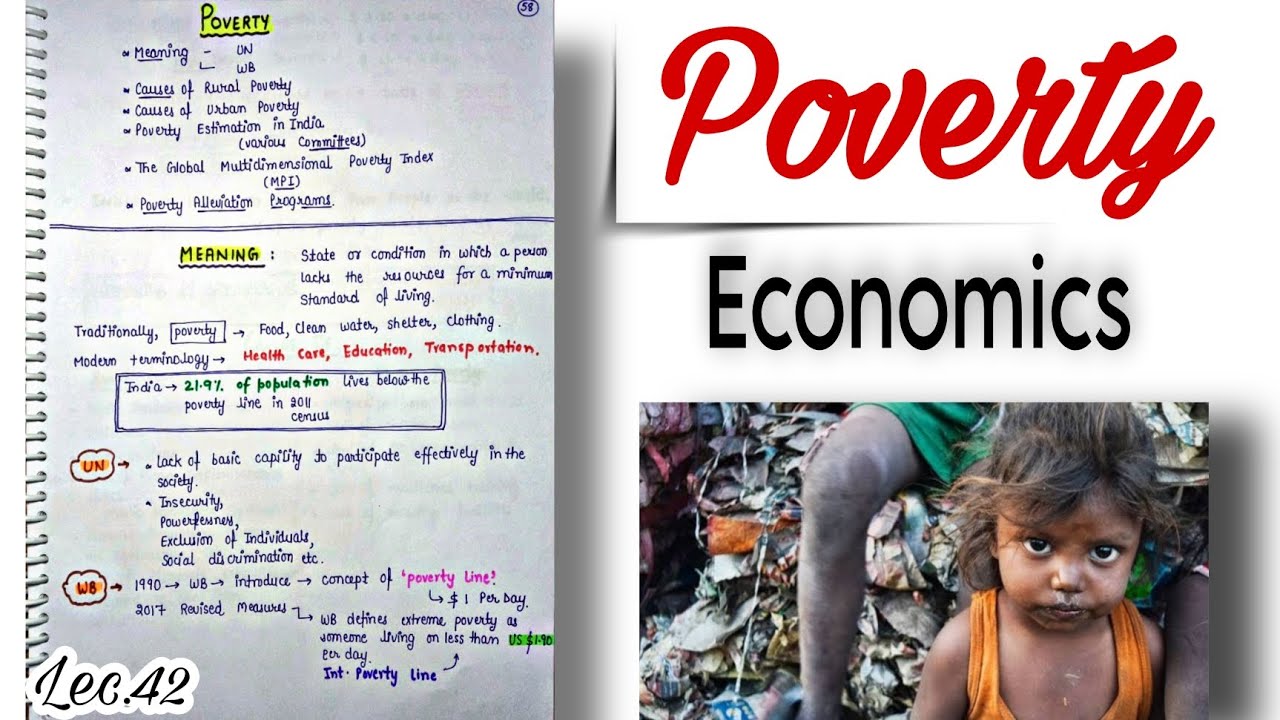 58
POVERTY
Meaning - UN
WB
Causes of Rural Poverty
Causes of Urban Poverty
Poverty Estimation in India
(various Committees)
The Global Multidimensional Poverty Index
(MPI)
Poverty Alleviation Programs.
MEANING : State or condition in which a person
lacks the resources for a minimum
standard of living.
Traditionally, poverty → Food, clean water, shelter, clothing.
Modern terminology → Health Care, Education, Transportation.
India → 21.9% of population lives below the
poverty line in 2011
census
UN → Lack of basic capility to participate effectively in the
society.
Insecurity,
Powerlesnes,
Exclusion of Individuals,
Social discrimination etc.
WB → 1990 → WB → introduce → concept of 'poverty line'.
→ $1 Per Day.
2017 Revised Measures → WB defines extreme poverty as
someone living on less than US $1.90
per day.
Int. Poverty Line
Lec.42
Poverty
Economics